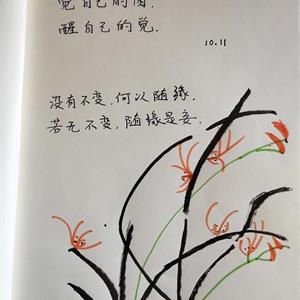 觉自己的
醒自己的觉.
10.11
没有不变,何以随缘,
若无不变,随缘是妄.